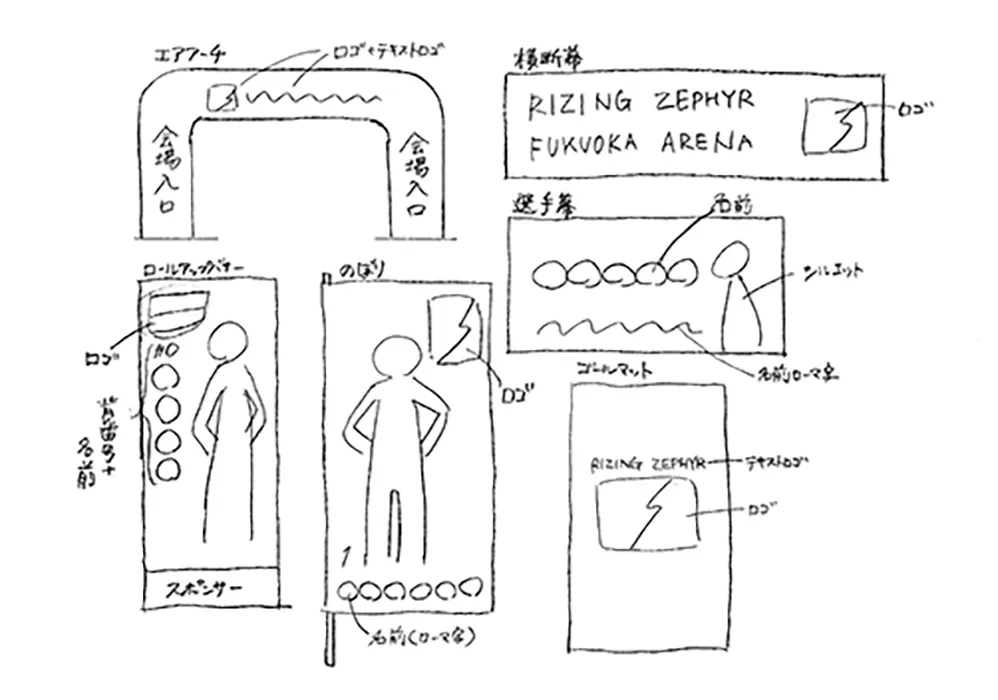 エアアーチ
ロゴ+テキストロゴ
会場入口
会場入口
横断幕
RIZING ZEPHYR
FUKUOKA ARENA
ロゴ
選手幕
名前
シルエット
名前ローマ字
ロールアップバナー
ロゴ
#0
背番号+
名前
スポンサー
のぼり
ロゴ
1
名前(ローマ字)
ゴールマット
RIZING ZEPHYR
テキストロゴ
ロゴ